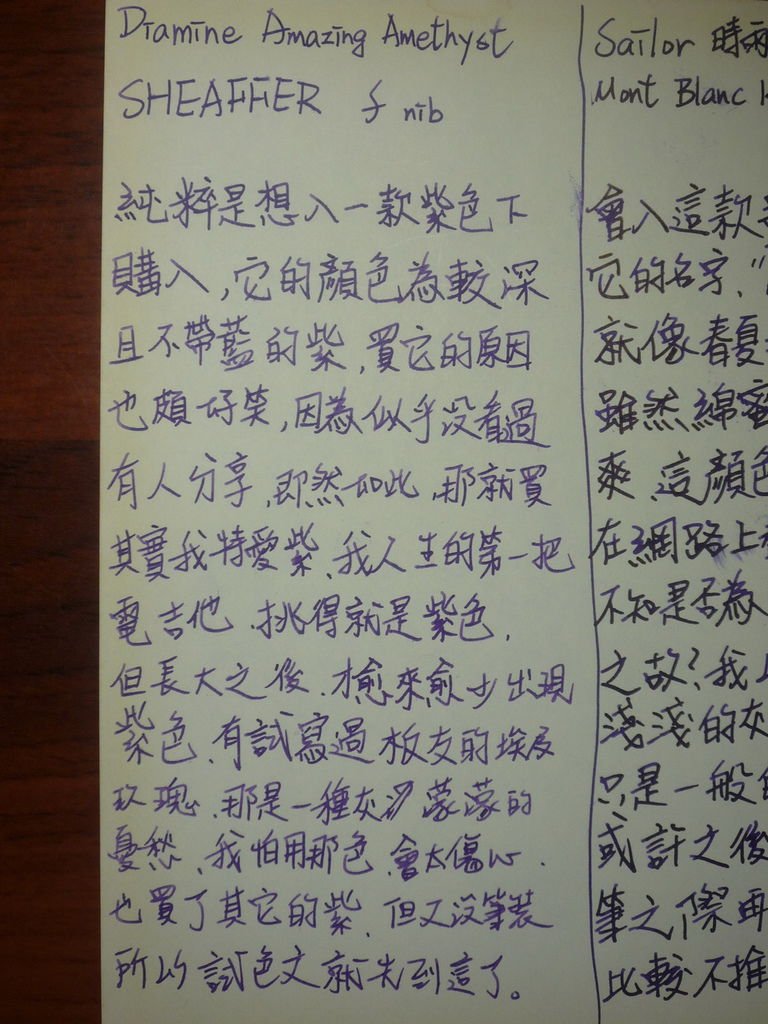 Diamine Amazing Amethyst
SHEAFFER f nib
純粹是想入一款紫色下
購入,它的顏色為較深
且不帶藍的紫,買它的原因
也頗好笑,因為似乎沒看過
有人分享,即然如此,那就買
其實我特愛紫、我人生的第一把
電吉他、挑得就是紫色,
但長大之後、才愈來愈少出現
紫色、有試寫過板友的埃及
玫瑰、那是一種灰濛濛的
憂愁、我怕用那色、會太傷心、
也買了其它的紫、但又沒筆裝
所以試色文就先到這了。
Sailor 時雨
Mont Blanc
會入這款
它的名字,"
就像春夏
雖然綿密
爽、這顏色
在網路上
不知是否為
之故?我
淺淺的灰
只是一般
或許之後
筆之際再
比較不推